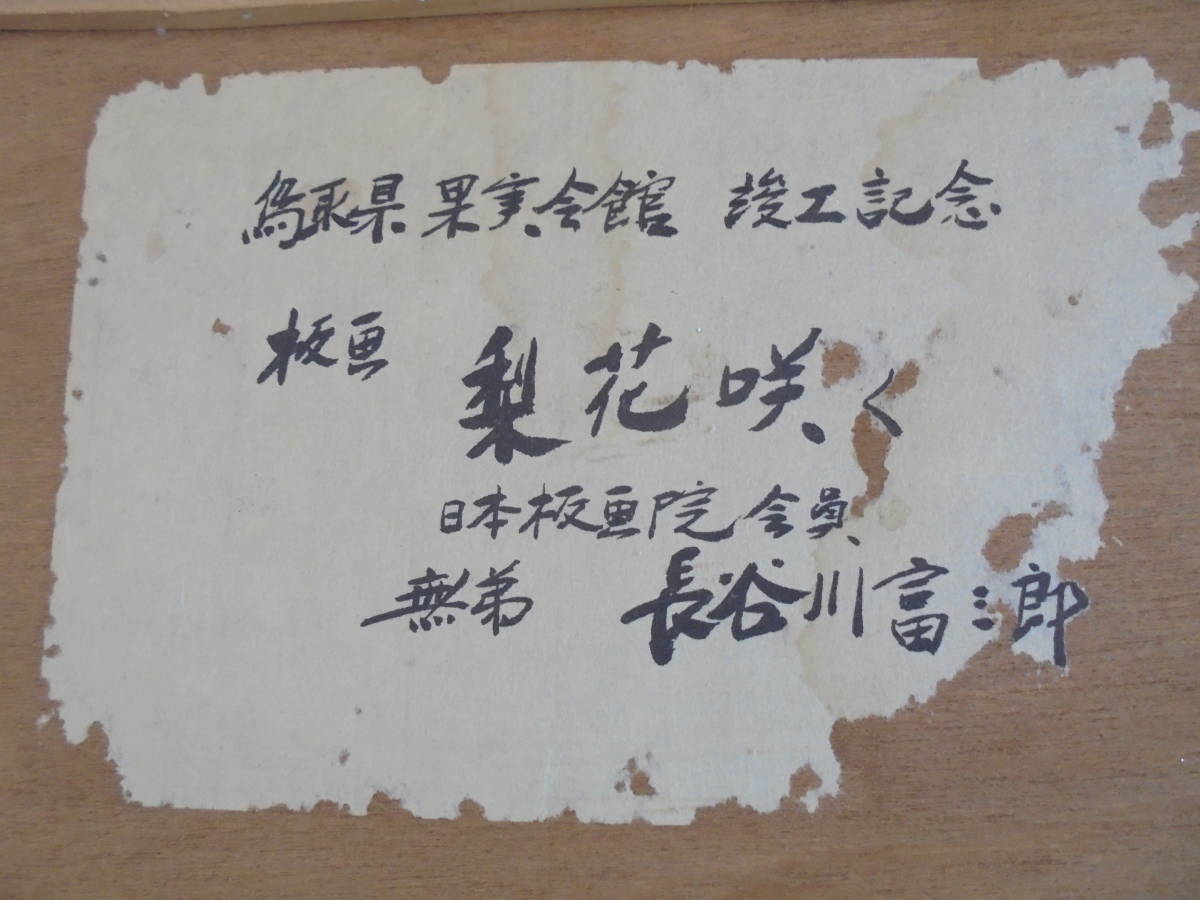 鳥取県果実会館 竣工記念
板画 梨花咲く
日本板画院会員
無弟 長谷川富三郎